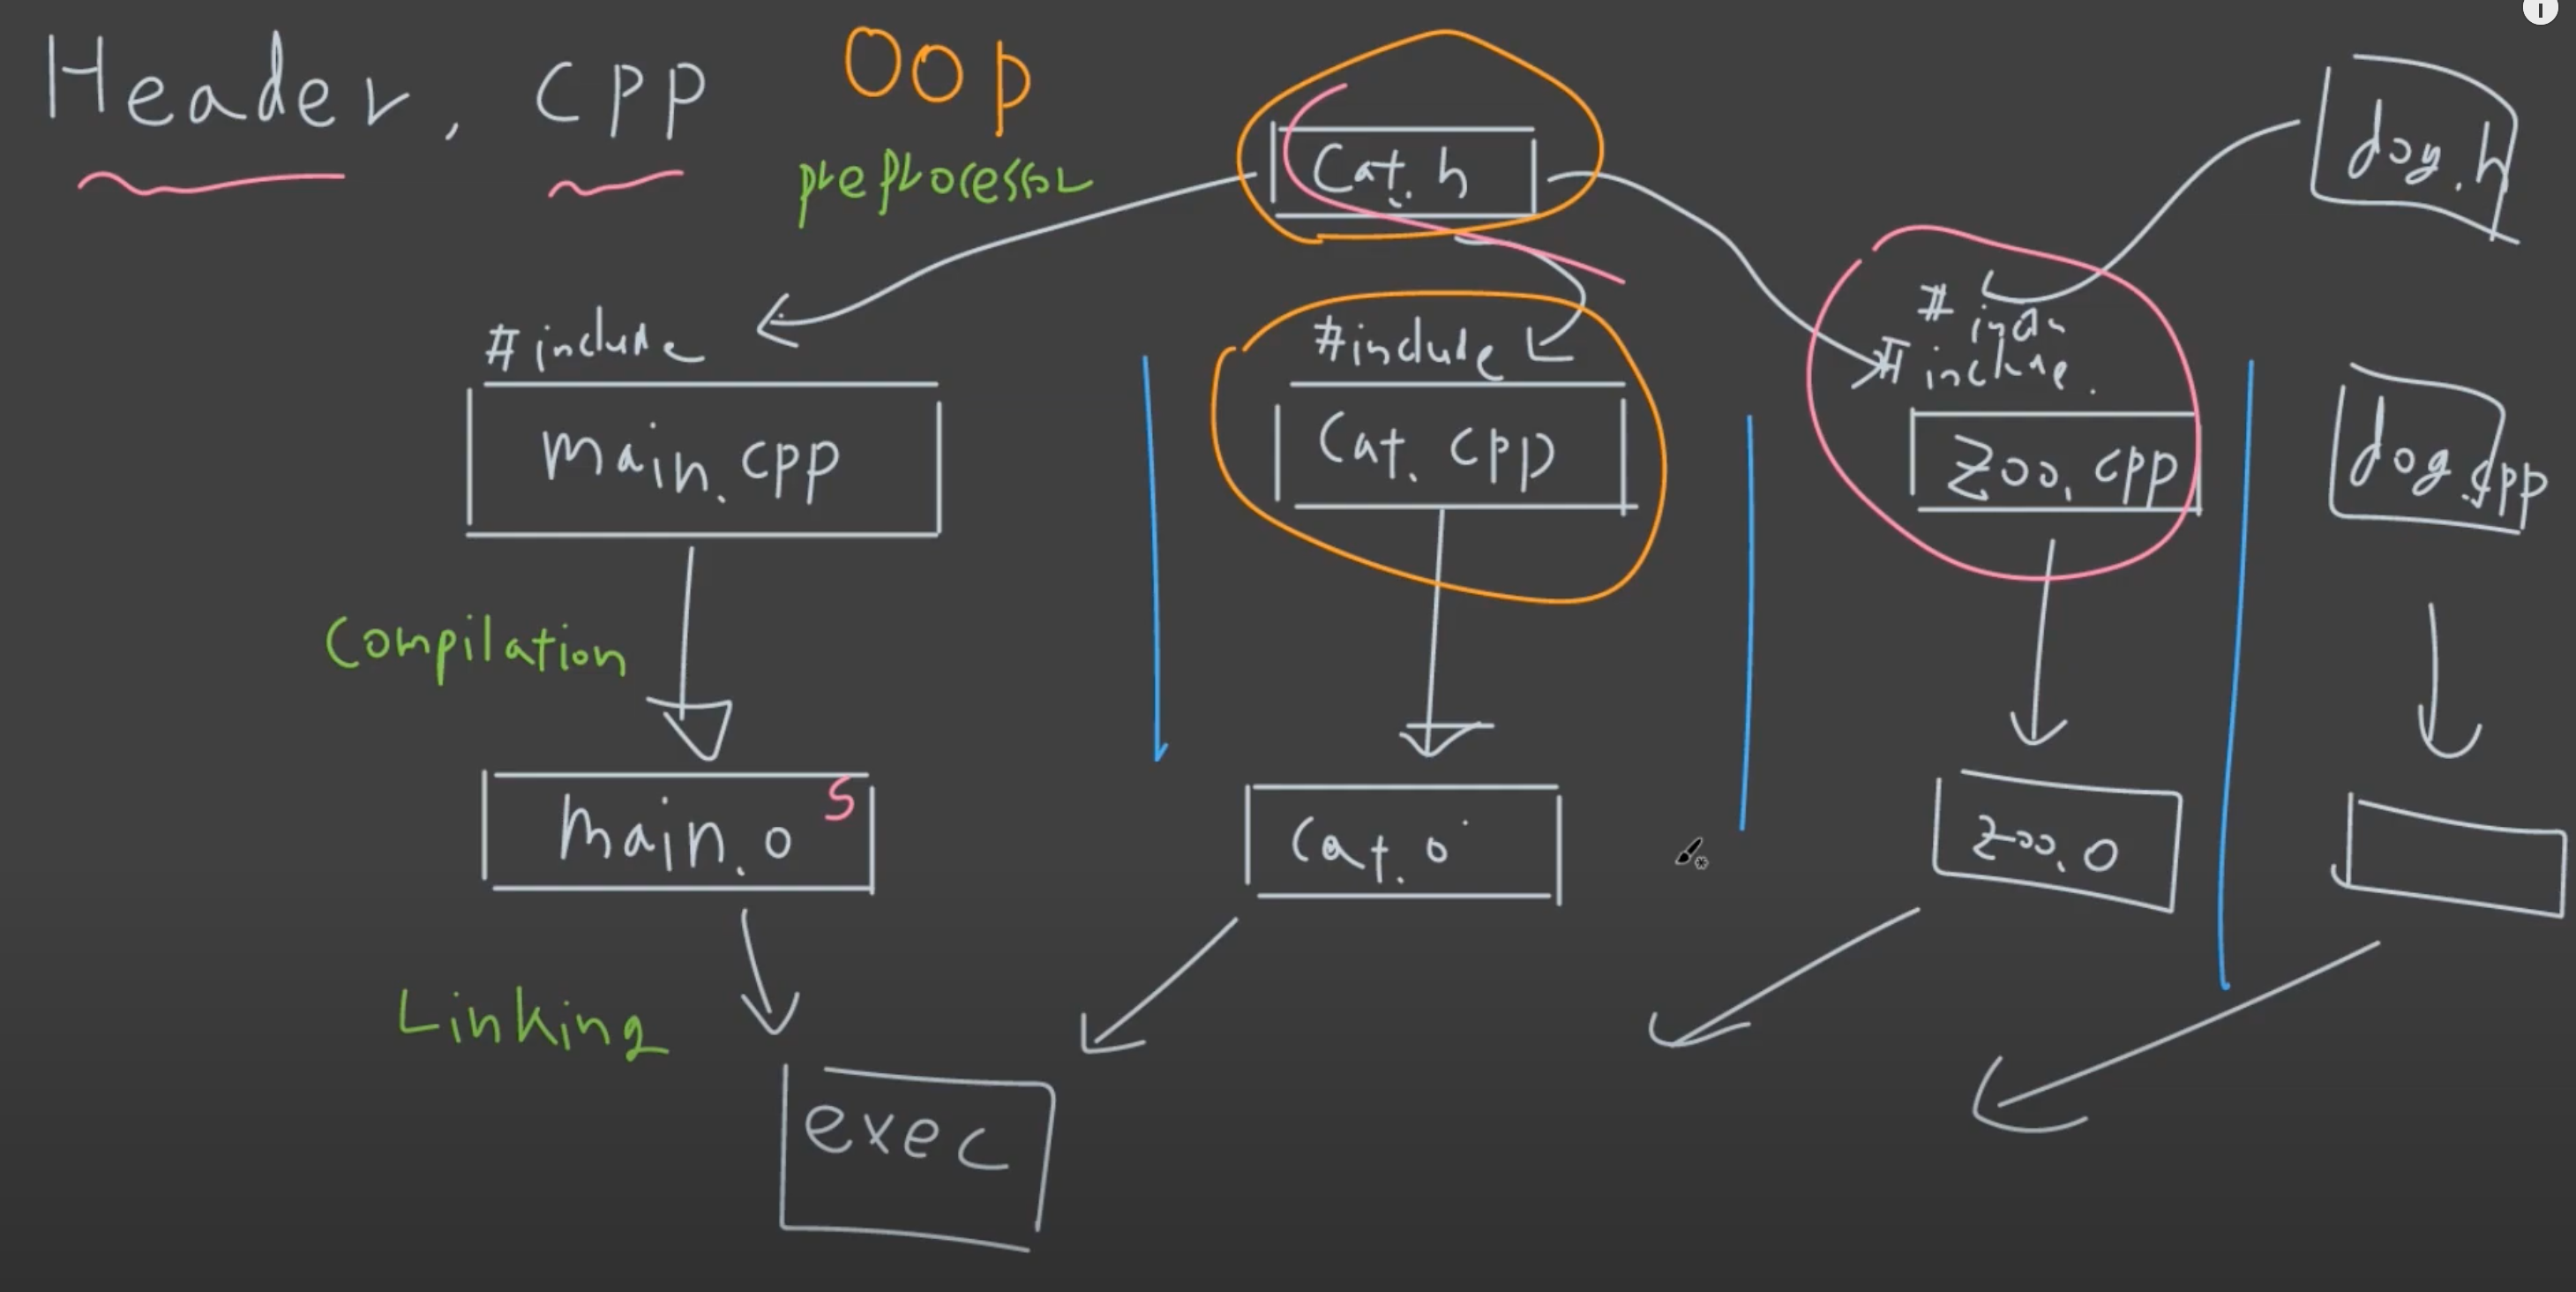 Header, cpp
OOP
preprocessor
Cat.h
dog.h
#include
#include
#
#include.
main.cpp
Cat.cpp
Zoo.cpp
dog.cpp
Compilation
main.o
5
Cat.o
Zoo.o
Linking
exec